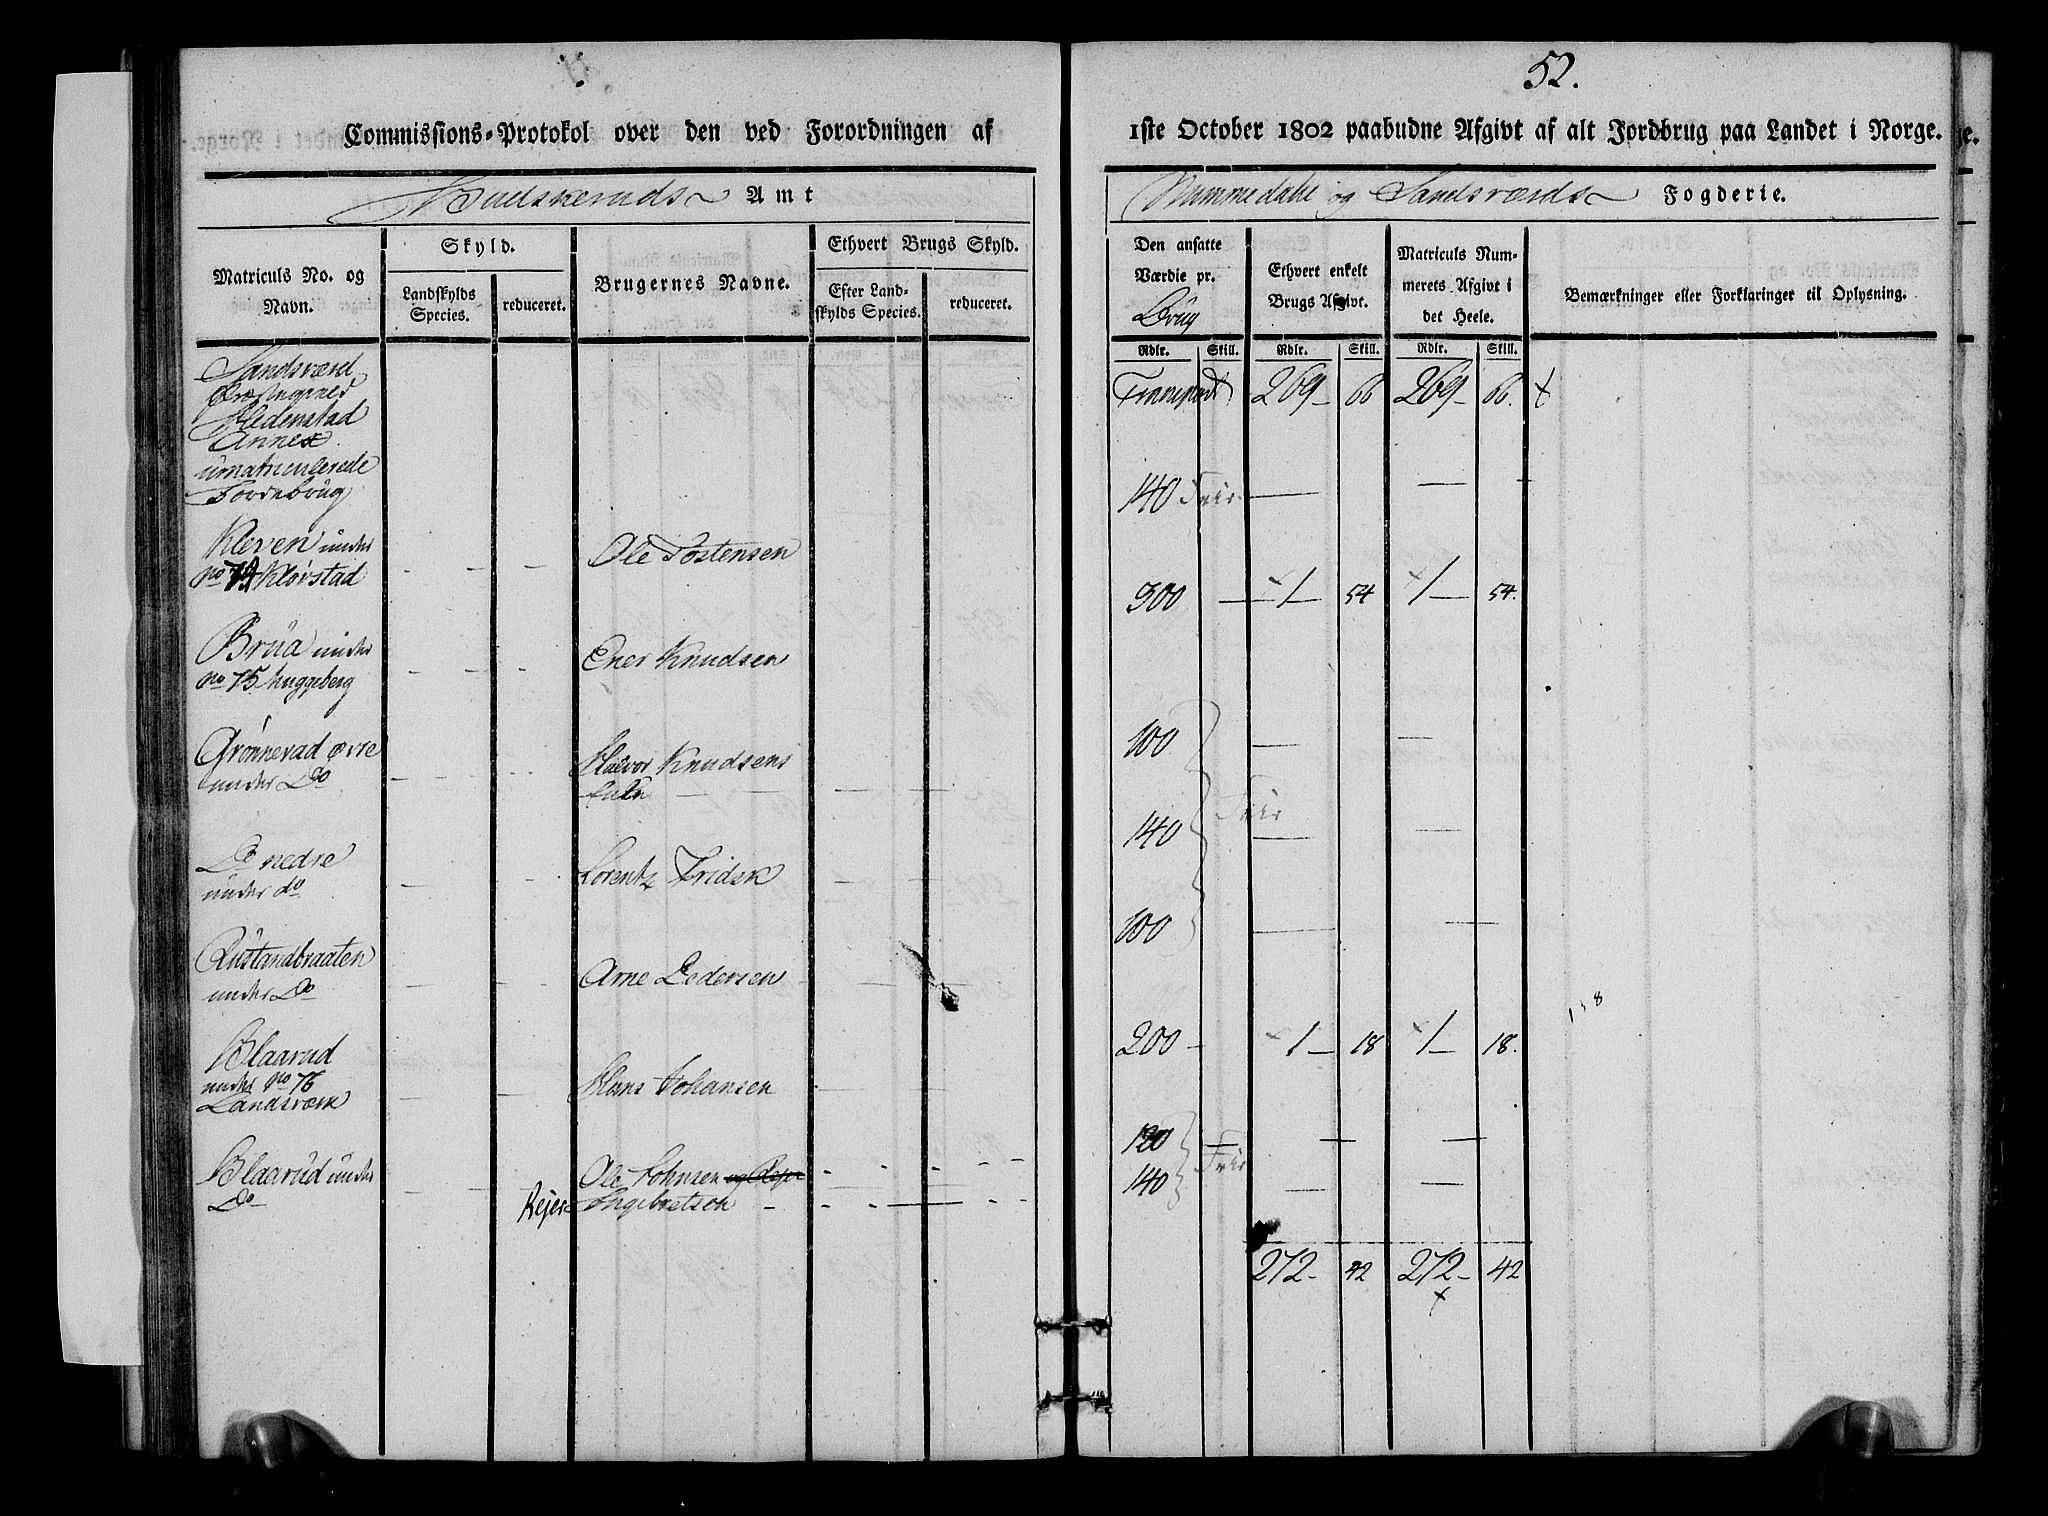 52.
Commissions-Protokol over den ved Forordningen af
1ste October 1802 paabudne Afgivt af alt Jordbrug paa Landet i Norge.
Buuskeruds Amt
Nummedahl og Sandsværds Fogderie.
Matriculs No. og Navn.
Skyld.
Landskylds Species.
reduceret.
Brugernes Navne.
Ethvert Brugs Skyld.
Efter Landskylds Species.
reduceret.
Den ansatte Værdie pr. Brug
Ethvert enkelt Brugs Afgivt.
Matriculs Nummerets Afgivt i det Heele.
Bemærkninger eller Forklaringer til Oplysning.
Rdlr. Skill. Rdlr. Skill. Rdlr. Skill.
Sandsværd
Præstegield
Hedenstad
Annex
umatriculerede
Jordebrug
Transport 269 - 66 269 - 66.
Kleven under
no 74 Kløvstad
Ole Tostensen
140 Frie
Brua under
no 75 Huggeberg
Ener Knudsen
300 - 1 - 54 1 - 54.
Grønnevad øvre
under Do
Halvor Knudsens
Enke
100
Do nedre
under do
Lorentz Fridsk
140 Frie
Rustandbraaten
under Do
Arne Pedersen
100
Blaarud
under no 76
Landsværk
Hans Johansen
200 - 1 - 18 1 - 18.
Blaarud under
Do
Ole Johnsen og Rejer
Rejer Ingebretsen
120
140 Frie
272 - 42 272 - 42